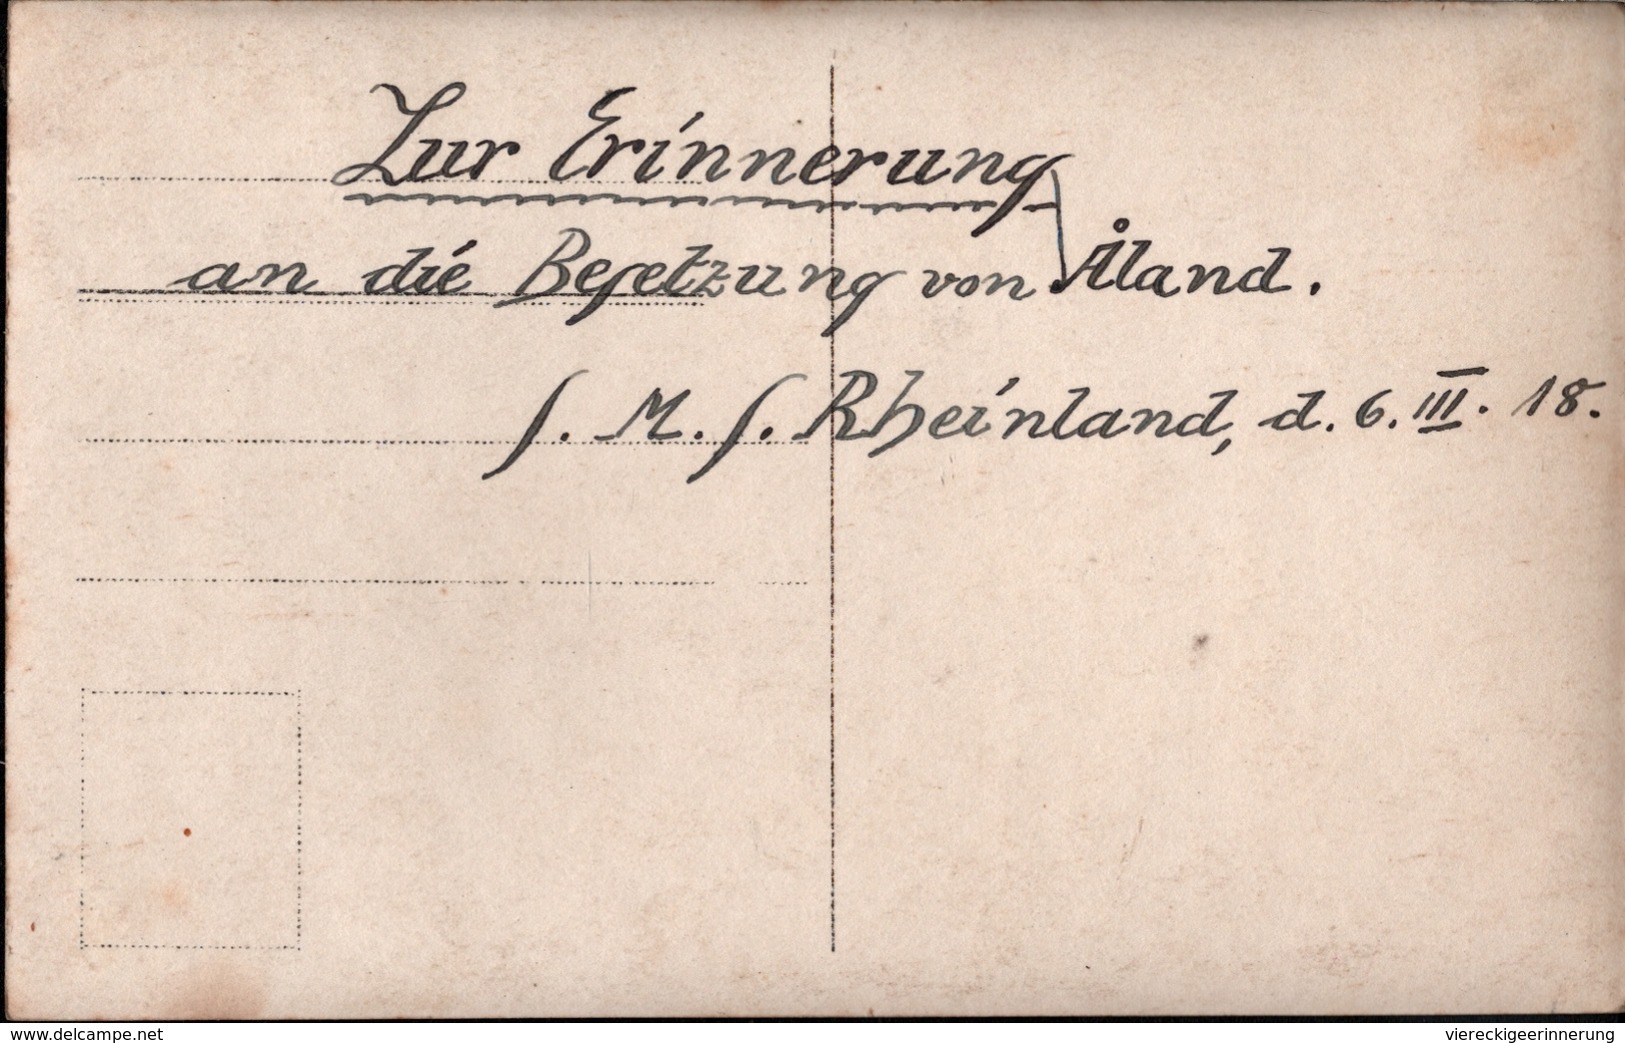 Zur Erinnerung
an die Besetzung von Åland.
S. M. S. Rheinland, d. 6. III. 18.
www.delcampe.net
viereckigeerinnerung